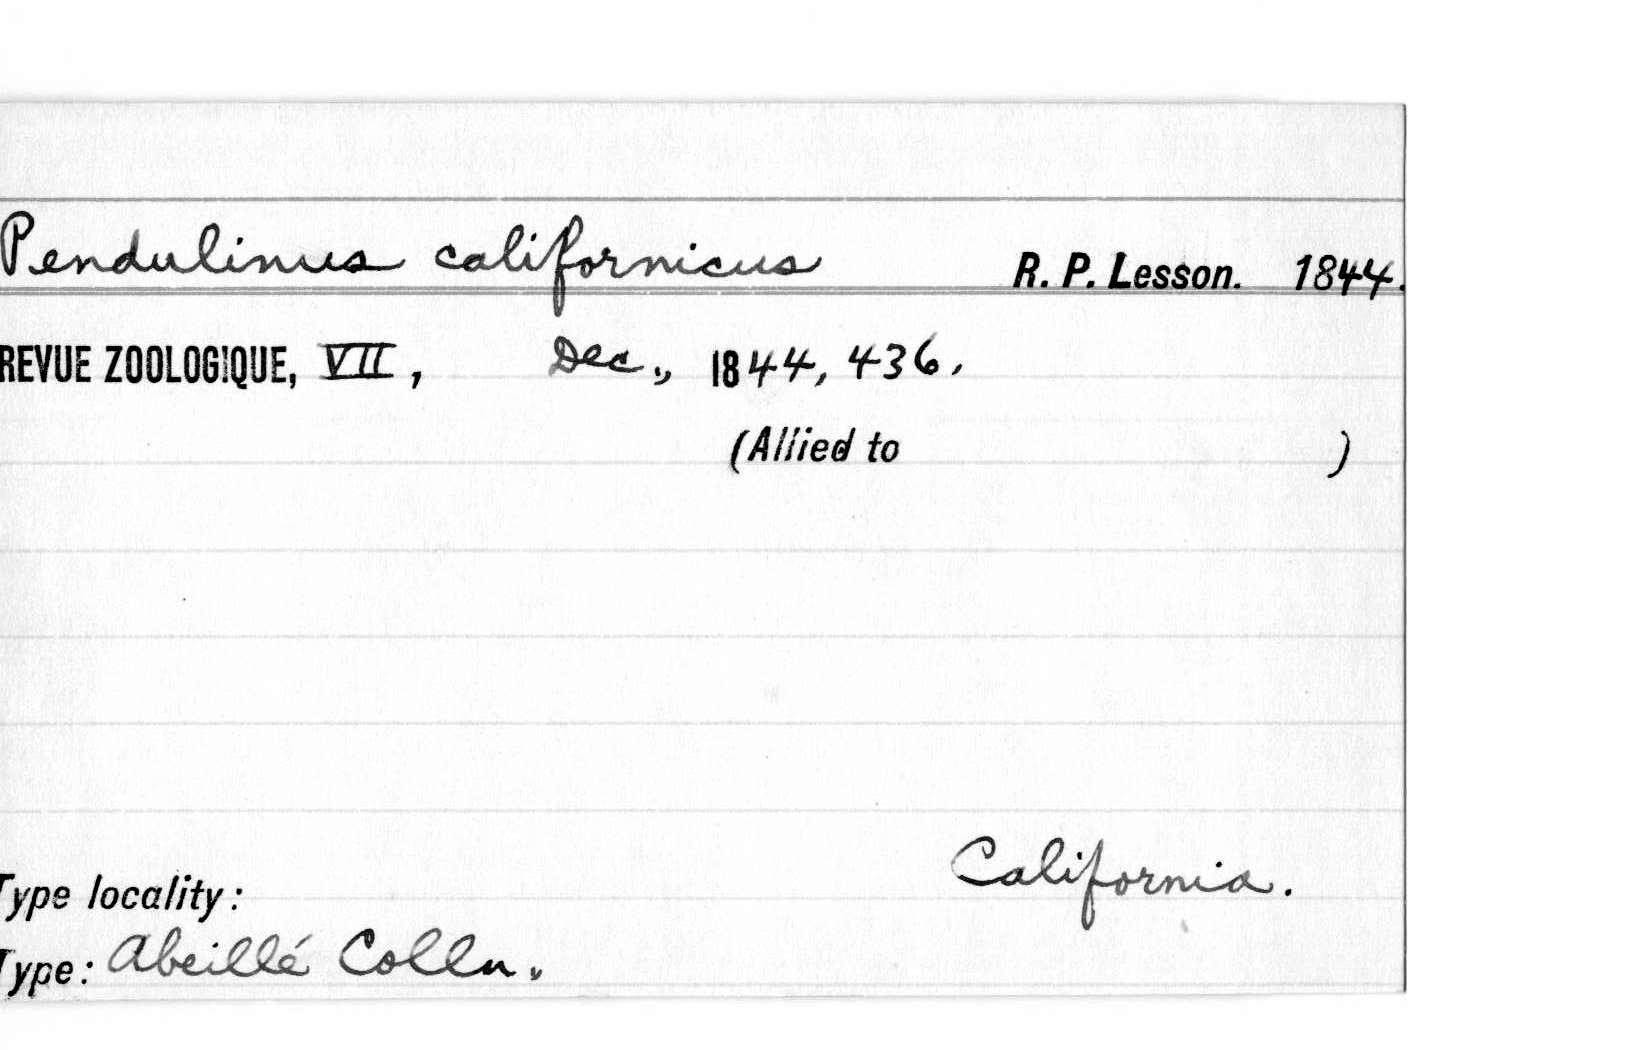 Pendulinus californicus R. P. Lesson. 1844.
REVUE ZOOLOGIQUE, VII, Dec., 1844, 436.
(Allied to )
California.
Type locality:
Type: Abeillé Colln.